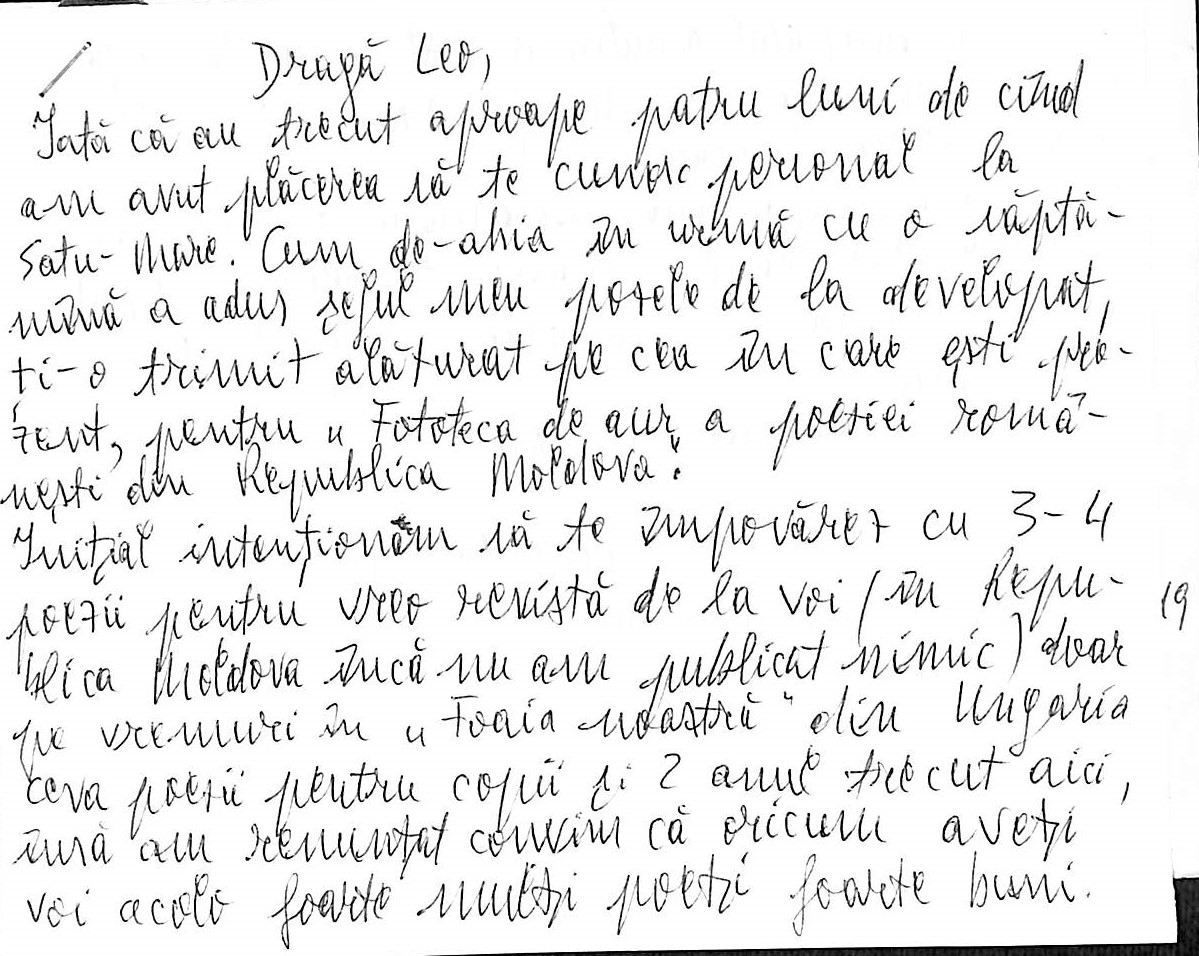 Dragă Leo,
Iată că au trecut aproape patru luni de cînd
am avut plăcerea să te cunosc personal la
Satu-Mare. Cum de-abia în urmă cu o săptă-
mînă a adus șeful meu pozele de la developat,
ți-o trimit alăturat pe cea în care ești pre-
zent, pentru „Fototeca de aur a poeziei româ-
nești din Republica Moldova".
Inițial intenționam să te împovărez cu 3-4
poezii pentru vreo revistă de la voi (în Repu-
blica Moldova încă nu am publicat nimic) doar
pe vremuri în „Foaia noastră" din Ungaria
ceva poezii pentru copii și 2 anul trecut aici,
însă am renunțat convins că oricum aveți
voi acolo foarte mulți poeți foarte buni.
19